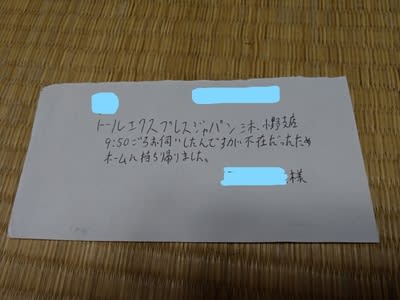 トールエクスプレスジャパン 三木、小野支店
9:50ごろお伺いしたんですが不在だったため
ホームに持ち帰りました。
様